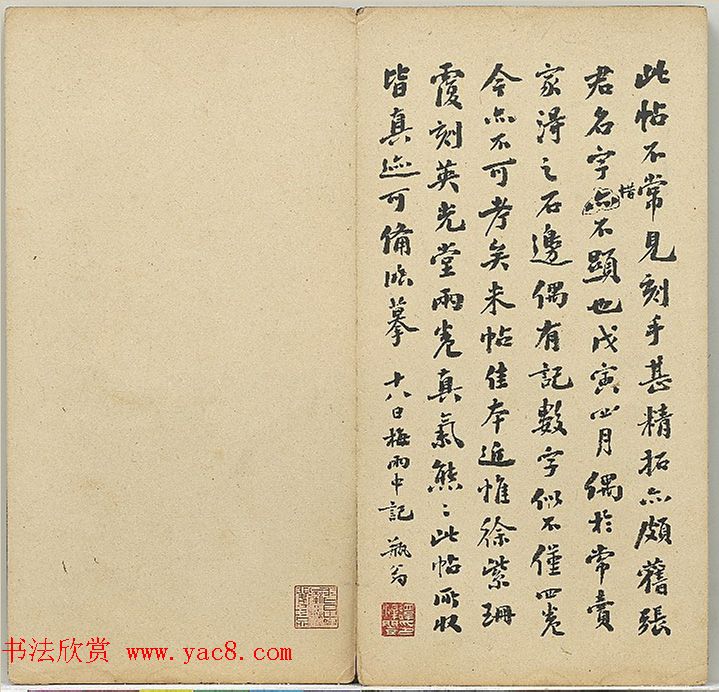 此帖不常見刻手甚精拓亦頗舊張
君名字亦不顯也戊寅四月偶於常賣
惜
家得之石邊偶有記數字似不僅四卷
今亦不可考矣米帖佳本近惟徐紫珊
覆刻英光堂兩卷真氣熊〻此帖所收
皆真迹可備臨摹 十八日梅雨中記 瓶翁
书法欣赏 www.yac8.com